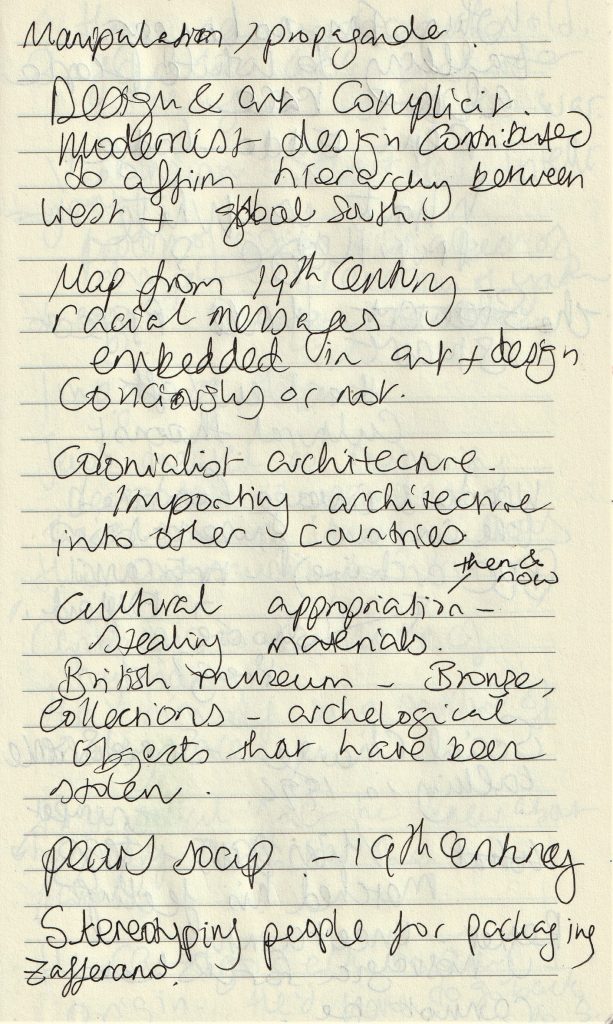 Manipulation / propaganda.
Design & art Complicit.
Modernist design contributed
to affirm hierarchy between
west + global South
Map from 19th Century -
racial messages
embedded in art + design
Conciously or not.
Colonialist architecture.
Importing architecture
into other countries.
then & now
Cultural appropriation -
Stealing materials.
British museum - Bronze,
Collections - archelogical
Objects that have been
stolen.
pears soap - 19th Century
Stereotyping people for packaging
Zafferano.